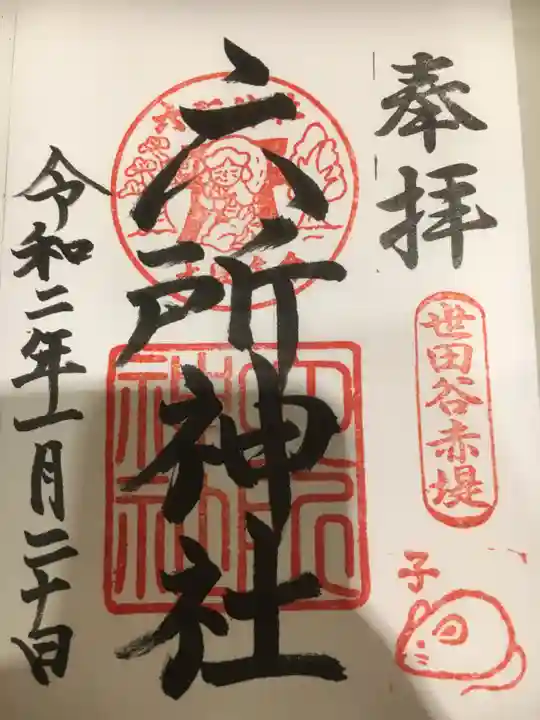 奉拝
世田谷赤堤
子
六所神社
六所神社
令和二年一月二十日